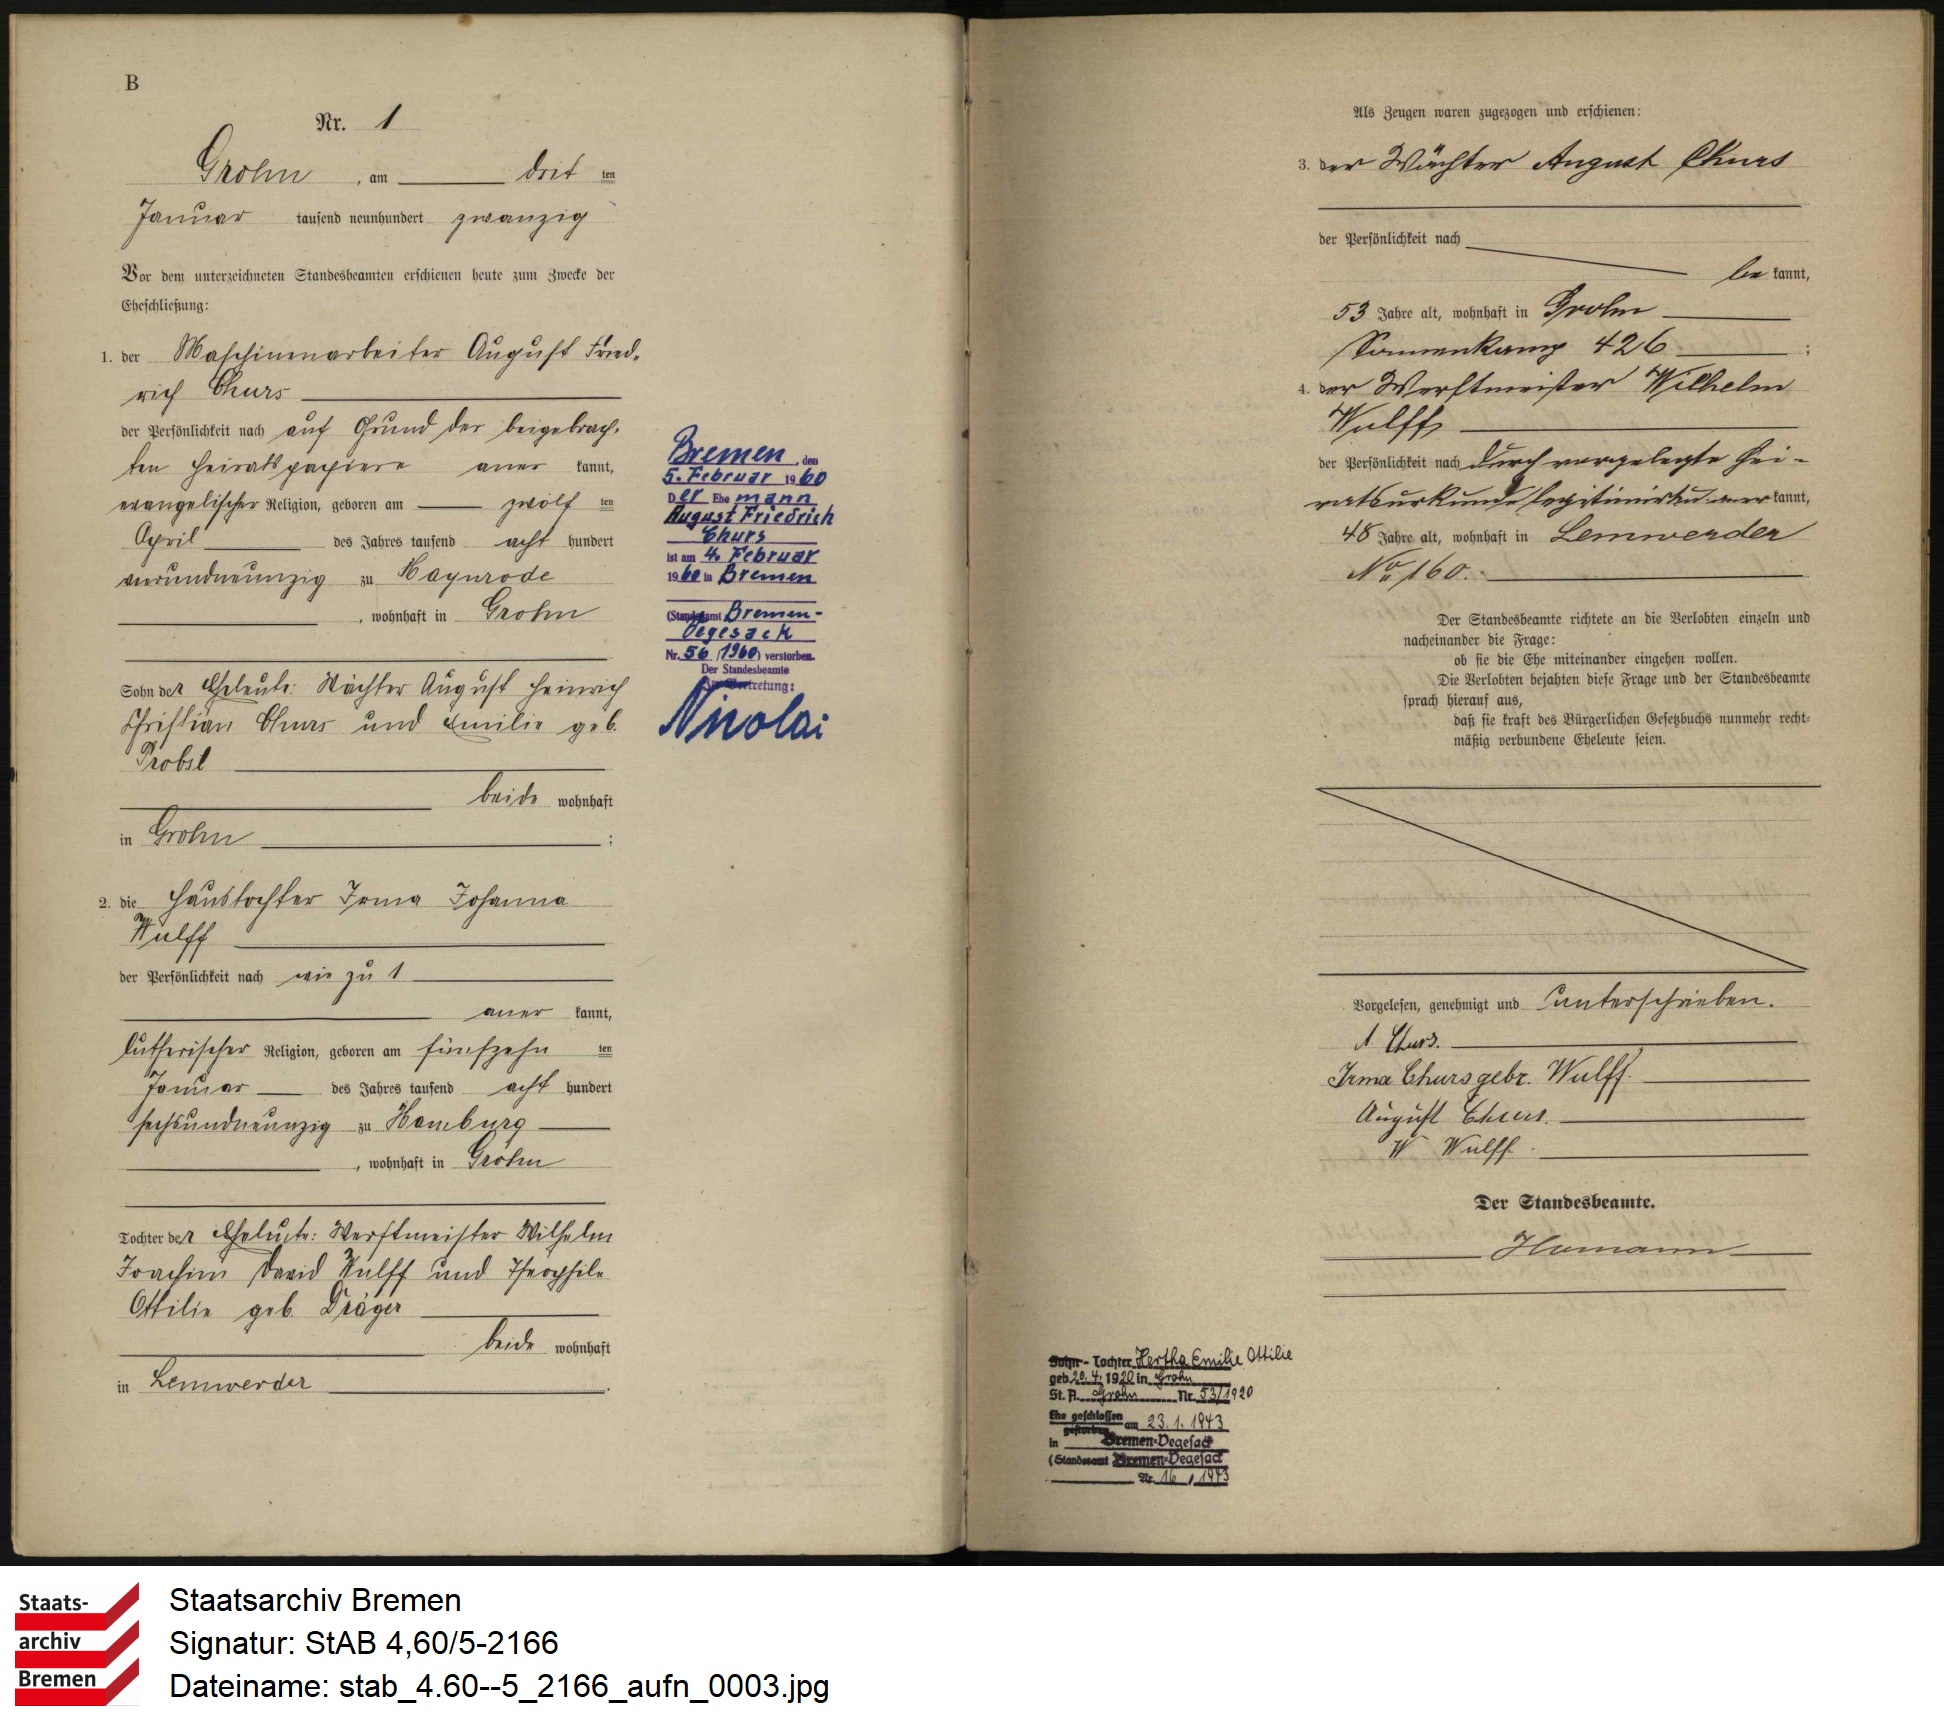 B
Nr. 1
Grohn, am drit ten
Januar tausend neunhundert zwanzig
Vor dem unterzeichneten Standesbeamten erschienen heute zum Zwecke der
Eheschließung:
1. der Maschinenarbeiter August Fried-
rich Churs
der Persönlichkeit nach auf Grund der beigebrach-
ten Heiratspapiere aner kannt,
evangelischer Religion, geboren am zwölf ten
April des Jahres tausend acht hundert
vierundneunzig zu Haynrode
, wohnhaft in Grohn
Sohn der Eheleute: Wächter August Heinrich
Christian Churs und Emilie geb.
Probst
beide wohnhaft
in Grohn ;
2. die Haustochter Irma Johanna
Wulff
der Persönlichkeit nach wie zu 1
aner kannt,
lutherischer Religion, geboren am fünfzehn ten
Januar des Jahres tausend acht hundert
sechsundneunzig zu Hamburg
, wohnhaft in Grohn
Tochter der Eheleute: Werftmeister Wilhelm
Joachim David Wulff und Theophile
Ottilie geb. Dräger
beide wohnhaft
in Lemwerder .
Bremen, den
5. Februar 1960
Der Ehemann
August Friedrich
Churs
ist am 4. Februar
1960 in Bremen
(Standesamt Bremen-
Vegesack
Nr. 56 /1960) verstorben.
Der Standesbeamte
In Vertretung:
Nicolai
Als Zeugen waren zugezogen und erschienen:
3. der Wächter August Churs
der Persönlichkeit nach
be kannt,
53 Jahre alt, wohnhaft in Grohn
Sonnenkamp 426 ;
4. der Werftmeister Wilhelm
Wulff
der Persönlichkeit nach durch vorgelegte Hei-
ratsurkunde legitimirt u. aner kannt,
48 Jahre alt, wohnhaft in Lemwerder
No 160.
Der Standesbeamte richtete an die Verlobten einzeln und
nacheinander die Frage:
ob sie die Ehe miteinander eingehen wollen.
Die Verlobten bejahten diese Frage und der Standesbeamte
sprach hierauf aus,
daß sie kraft des Bürgerlichen Gesetzbuchs nunmehr recht-
mäßig verbundene Eheleute seien.
Vorgelesen, genehmigt und unterschrieben.
A Churs.
Irma Churs gebr. Wulff.
August Churs.
W Wulff.
Der Standesbeamte.
Sohn - Tochter Hertha Emilie Ottilie
geb. 20.4. 1920 in Grohn
St. A. Grohn Nr. 53/1920
Ehe geschlossen
gestorben am 23.1.1943
in Bremen-Vegesack
(Standesamt Bremen-Vegesack
Nr. 16 / 1943
Staats-
archiv
Bremen
Staatsarchiv Bremen
Signatur: StAB 4,60/5-2166
Dateiname: stab_4.60--5_2166_aufn_0003.jpg